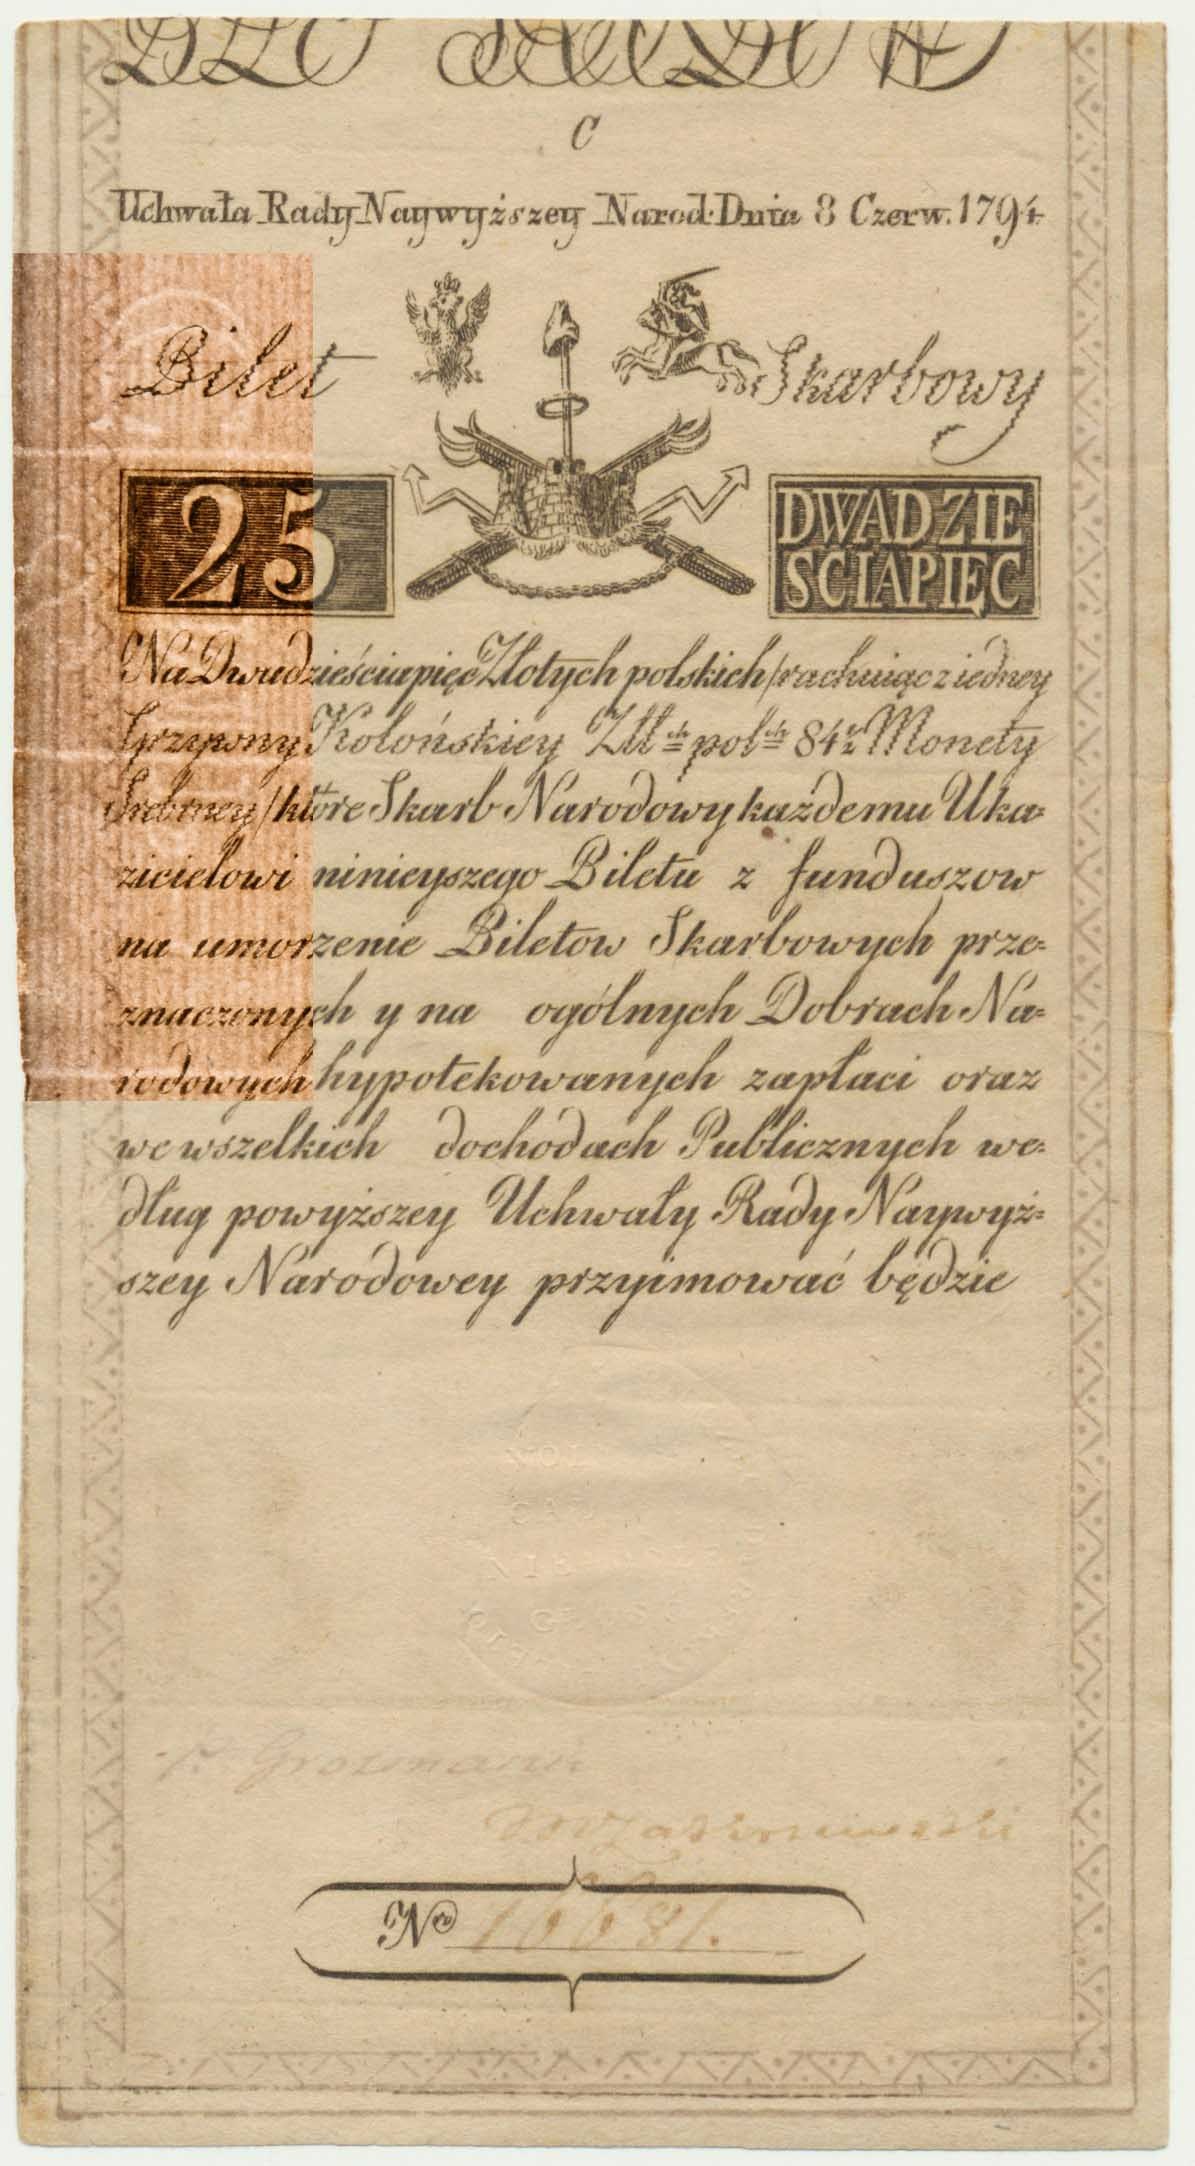 C
Uchwała Rady Naywyższey Narod: Dnia 8 Czerw. 1794.
Bilet Skarbowy
25 DWADZIE
SCIAPIĘC
Na Dwudzieściapięć Złotych polskich /rachuiąc z iedney
Grzywny Kolońskiey Złł ch pol ch 84 1/2 Monety
Srebrney/ które Skarb Narodowy każdemu Uka=
zicielowi ninieyszego Biletu z funduszow
na umorzenie Biletow Skarbowych prze=
znaczonych y na ogólnych Dobrach Na=
rodowych hypotekowanych zapłaci oraz
we wszelkich dochodach Publicznych we=
dług powyższey Uchwały Rady Naywyż=
szey Narodowey przyimować będzie
Grozmann
N ro 16681.